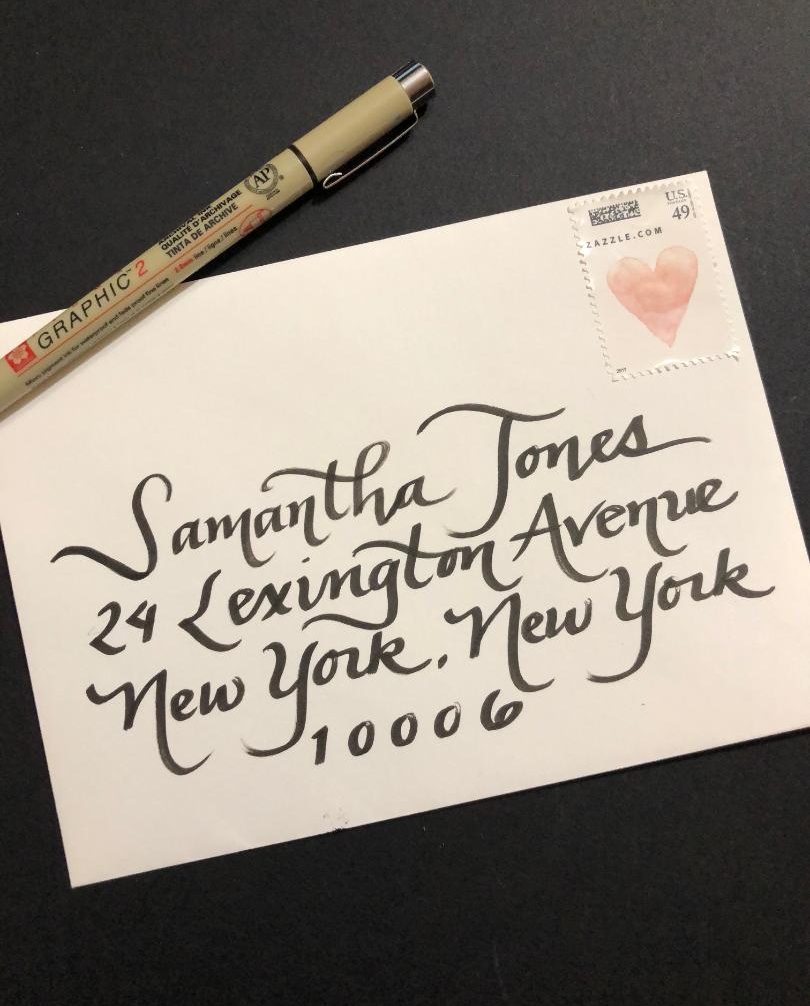 AP
QUALITÉ D'ARCHIVAGE
TINTA DE ARCHIVE
GRAPHIC™ 2
U.S.
49
ZAZZLE.COM
Samantha Jones
24 Lexington Avenue
New York, New York
10006